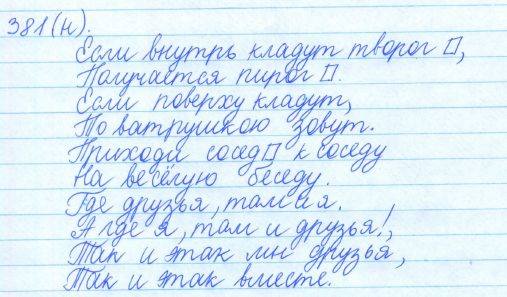 381(н).
Если внутрь кладут творог □,
Получается пирог □.
Если поверху кладут,
То ватрушкою зовут.
Приходи сосед□ к соседу
На весёлую беседу.
Где друзья, там и я.
А где я, там и друзья!,
Так и этак мы друзья,
Так и этак вместе.